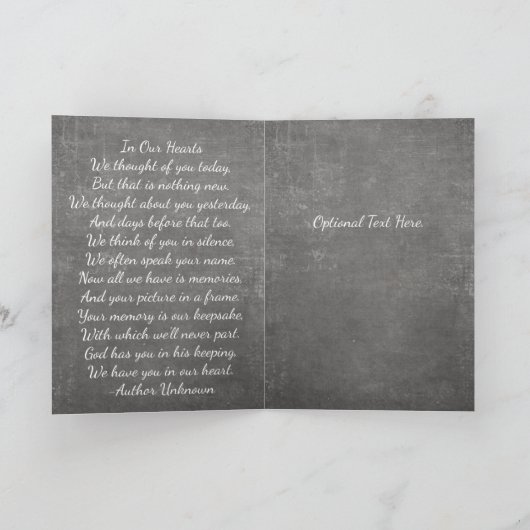 In Our Hearts
We thought of you today,
But that is nothing new.
We thought about you yesterday,
And days before that too.
We think of you in silence,
We often speak your name.
Now all we have is memories,
And your picture in a frame.
Your memory is our keepsake,
With which we'll never part.
God has you in his keeping,
We have you in our heart.
-Author Unknown
Optional Text Here.